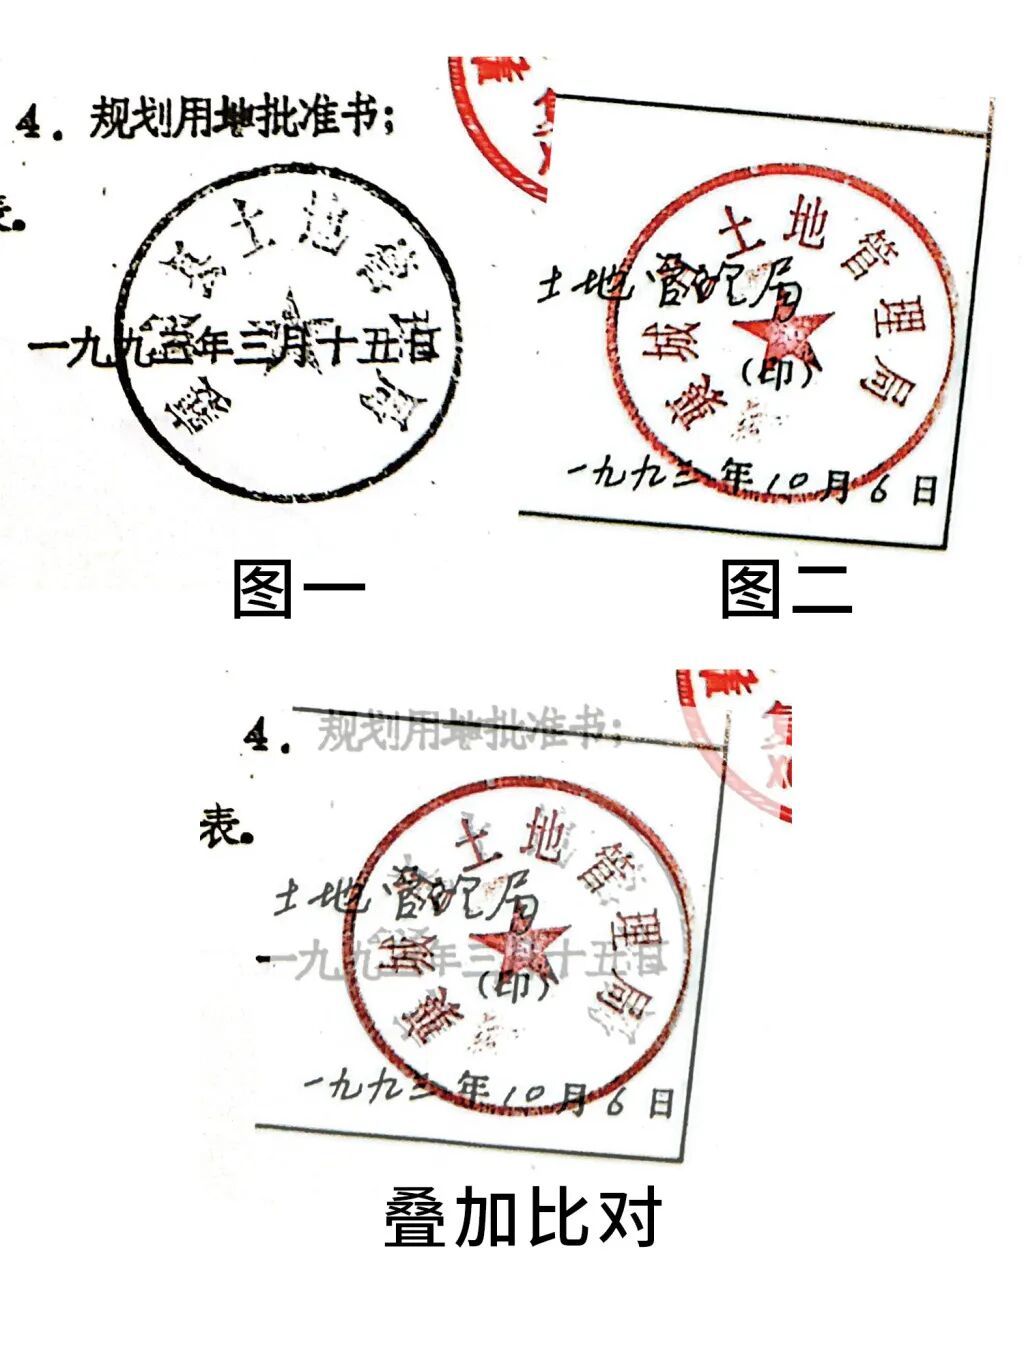 4. 规划用地批准书;
表。
土地管理局
一九九三年三月十五日
局
图一
土地管理局
城
土地管理局
(印)
一九九三年10月6日
图二
4. 规划用地批准书;
表。
土地管理局
城
土地管理局
一九九三年三月十五日
(印)
一九九三年10月6日
叠加比对